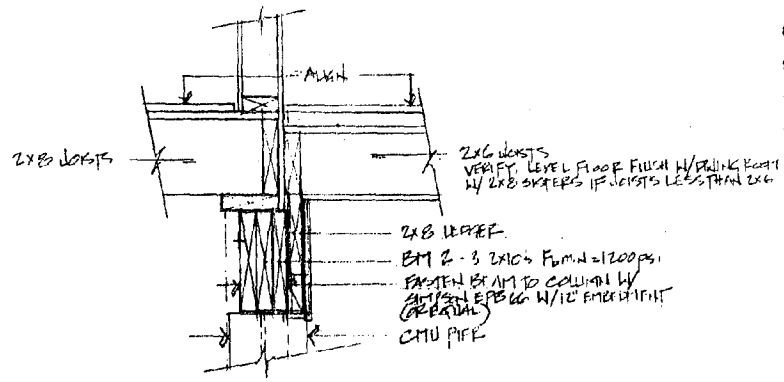 ALIGN
2x8 JOISTS
2x6 JOISTS
VERIFY, LEVEL FLOOR FINISH W/ DINING ROOM
W/ 2x8 SISTERS IF JOISTS LESS THAN 2x6
2x8 LEDGER
BM 2 - 3 2x10's Fb MIN = 1200 psi
FASTEN BEAM TO COLUMN W/
SIMPSON EPB66 W/ 12" EMBEDMENT
(OR EQUAL)
CMU PIER